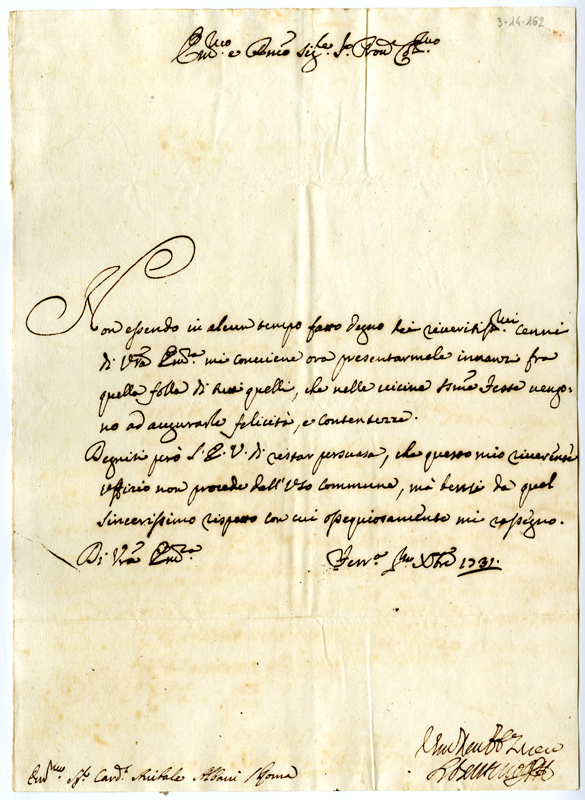 3-14-162
Em.mo e Rmo Sig.re Sr. Pron.e Col.mo
Non essendo in alcun tempo fatto degno dei riveritiss.mi cenni
di Vra Em.za mi conviene ora presentarmele innanzi fra
quella folla di tutti quelli, che nelle vicine Sme Feste vengo-
no ad augurarle felicità, e contentezze.
Degnisi però l'E. V. di restar persuasa, che questo mio riverente
uffizio non procede dall'uso commune, mà bensì dà quel
sincerissimo rispetto con cui ossequiosamente mi rassegno.
Di Vra Em.za Ferr.a Xbre 1731.
Em.mo Sig. Card. Anibale Albani Roma